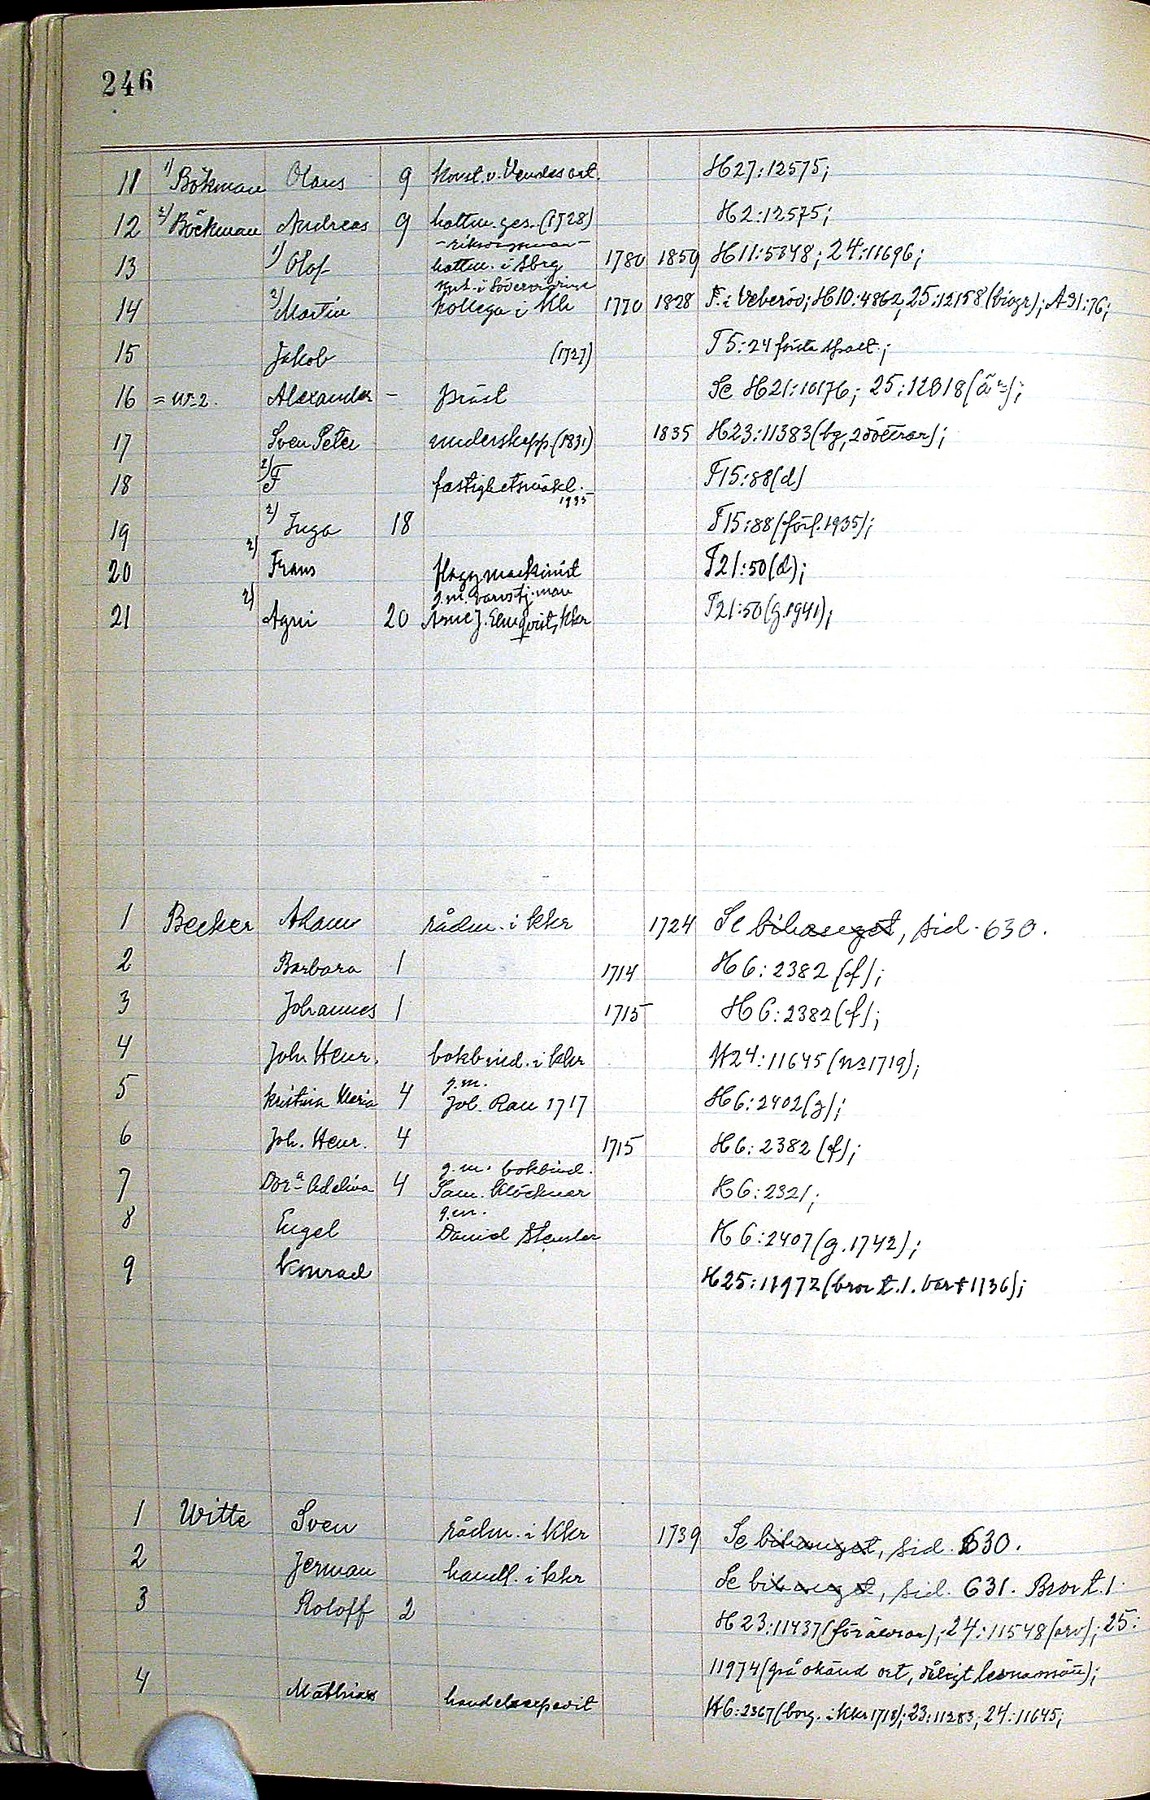 246
11 1) Bökman Olaus 9 konst. v. Vendes art. H27:12575;
12 2) Böckman Andreas 9 hattm. ges. (1728) H2:12575;
13 1) Olof hattm. i Sbrg 1780 1859 H11:5348; 24:11696;
14 2) Martin kollega i Kkr 1770 1828 F. i Veberöd; H10:4862, 25:12158 (biogr.); A31:76;
15 Jakob (1727) T5:24 första spalt.;
16 = nr 2. Alexander - präst Se H21:10176; 25:12018
17 Sven Peter underskepp. (1831) 1835 H23:11383 (bg, 2 döttrar);
18 2) F fastighetsmäkl. 1935 F15:88 (d)
19 2) Inga 18 F15:88 (förl. 1935);
20 2) Frans flaggmaskinist F21:50 (d);
g.m. varvstj.man
21 2) Agni 20 Arne J. Elmqvist, Kkr F21:50 (g. 1941);
1 Becker Adam rådm. i Kkr 1724 Se bihanget, sid. 630.
2 Barbara 1 1714 H6:2382 (f);
3 Johannes 1 1715 H6:2382 (f);
4 Joh. Henr. bokbind. i Kkr H24:11645 (nr 1719);
g.m.
5 Kristina Maria 4 Joh. Rau 1717 H6:2402 (g);
6 Joh. Henr. 4 1715 H6:2382 (f);
g.m. bokbind.
7 Dor:a Adelina 4 Sam. Klöckner H6:2321;
g.m.
8 Engel Daniel Stensler H6:2407 (g. 1742);
9 Konrad H25:11972 (bror t. 1. barn 1136);
1 Witte Sven rådm. i Kkr 1739 Se bihanget, sid. 630.
2 Jerman handl. i Kkr Se bihanget, sid. 631. Bror t. 1
3 Roloff 2 H23:11437 (föräldrar); 24:11548 (arv); 25:
11974 (på okänd ort, dåligt levnamsätt);
4 Mathias handelsexpedit H6:2367 (borg. i Kkr 1718); 23:11283, 24:11645;